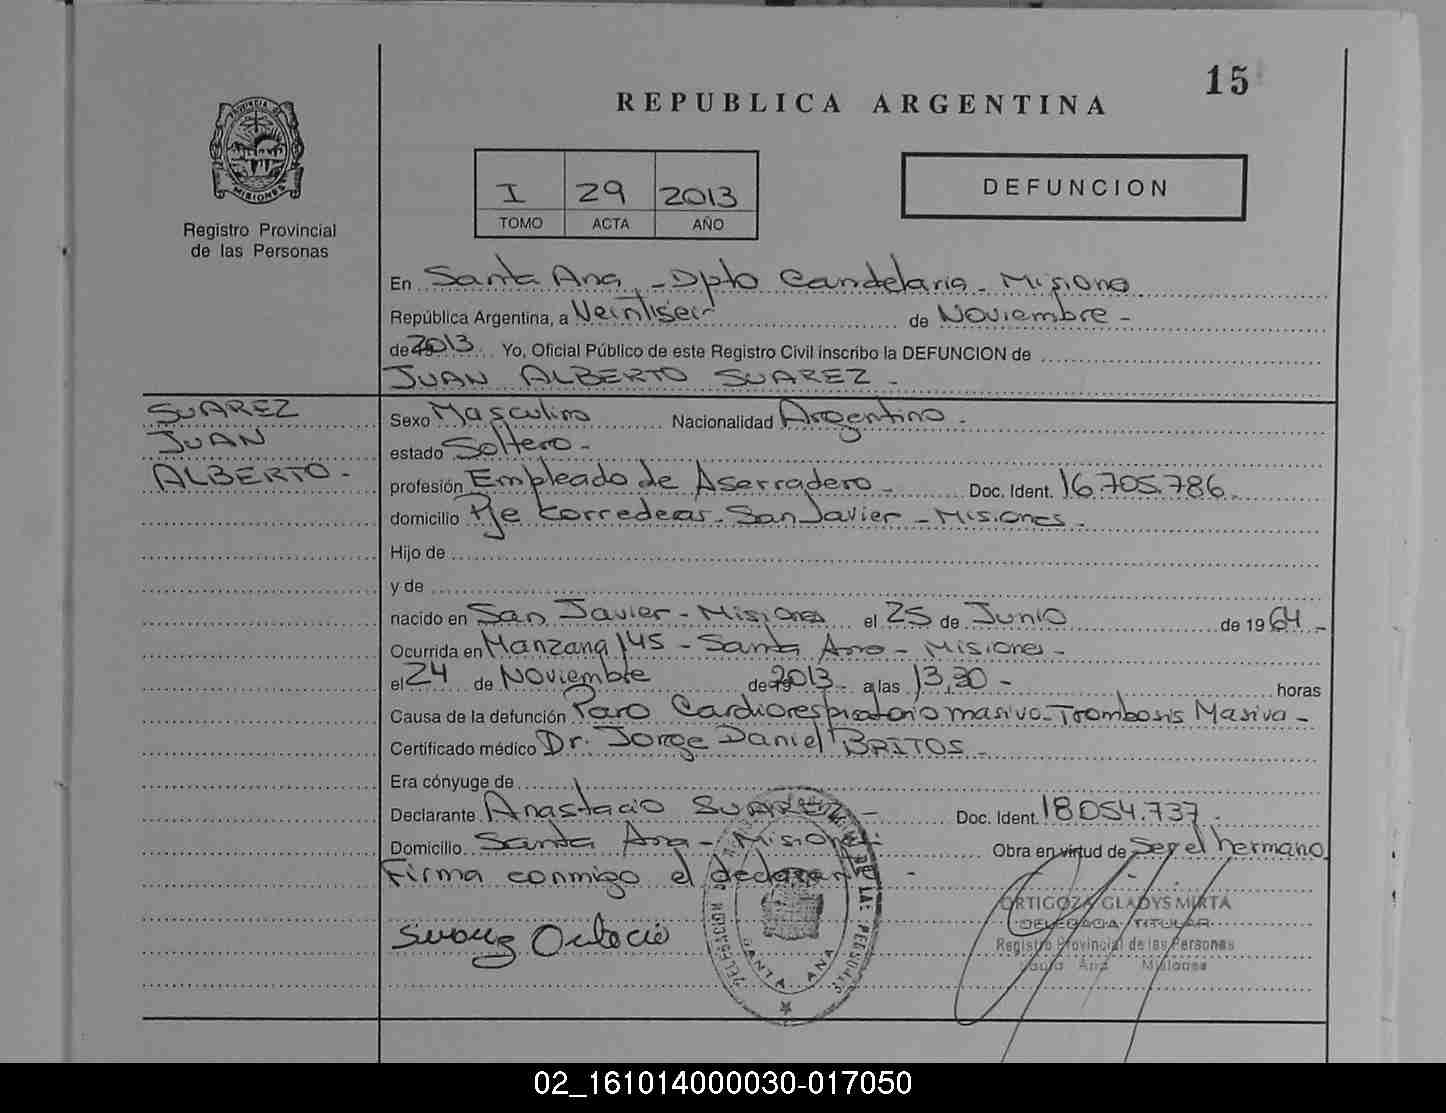 15
REPUBLICA ARGENTINA
PROVINCIA DE
MISIONES
Registro Provincial
de las Personas
I 29 2013
TOMO ACTA AÑO
DEFUNCION
En Santa Ana - Dpto Candelaria - Misiones
República Argentina, a Veintiseis de Noviembre -
de 2013 Yo, Oficial Público de este Registro Civil inscribo la DEFUNCION de
JUAN ALBERTO SUAREZ -
SUAREZ
JUAN
ALBERTO -
Sexo Masculino Nacionalidad Argentino -
estado Soltero -
profesión Empleado de Aserradero - Doc. Ident. 16.705.786 -
domicilio Pje - San Javier - Misiones -
Hijo de
y de
nacido en San Javier - Misiones el 25 de Junio de 1964 -
Ocurrida en Manzana 145 - Santa Ana - Misiones -
el 24 de Noviembre de 2013 a las 13,30 - horas
Causa de la defunción Paro Cardiorespiratorio masivo - Trombosis Masiva -
Certificado médico Dr. Jorge Daniel BRITOS -
Era cónyuge de
Declarante Anastacio SUAREZ - Doc. Ident. 18.054.737 -
Domicilio Santa Ana - Misiones Obra en virtud de Ser el hermano
Firma conmigo el declarante -
ORTIGOZA GLADYS MIRTA
DELEGADA TITULAR
Registro Provincial de las Personas
Santa Ana Misiones
SANTA ANA
02_161014000030-017050